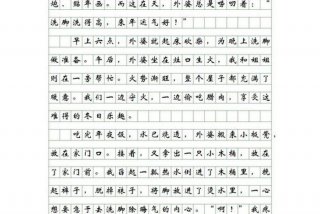 炮、贴年画。而这在天，外婆总是唠叨着："
洗脚洗得高，来年运气好！"
早上六点，外婆就起床砍柴，为晚上洗脚
做准备。年午后，外婆坐在灶口生火，我和姐姐
则在一旁帮忙。火势渐旺，整个屋子都充满了
暖意。我们一边守火，一边偷吃腊肉，享受这
难得的冬日乐趣。
吃完年夜饭，水已烧透，外婆搬来小板凳，
放在家门口。接着，又拿出一只小木桶，放在
了家门前。我舀起一瓢热水倒进了木桶里，挽
起裤子，脱掉袜子，将脚放进了烫水里，一心
想要急于去洗脚除晦气的内心。"啊！"我疾